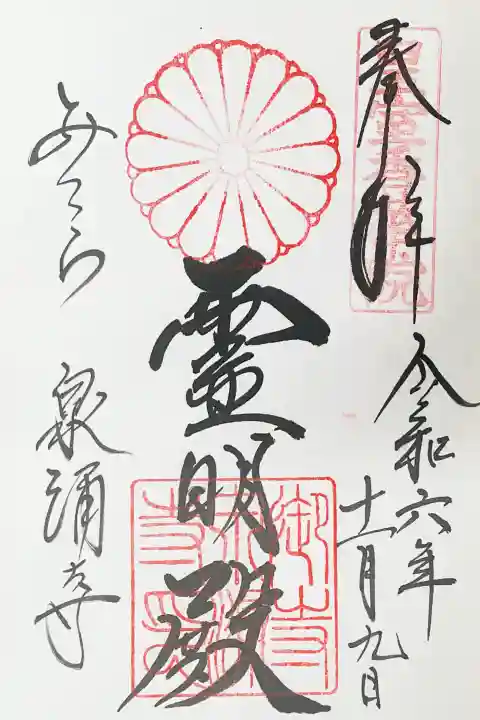 奉拝
令和六年
十一月九日
霊明殿
みてら
泉涌寺
御寺